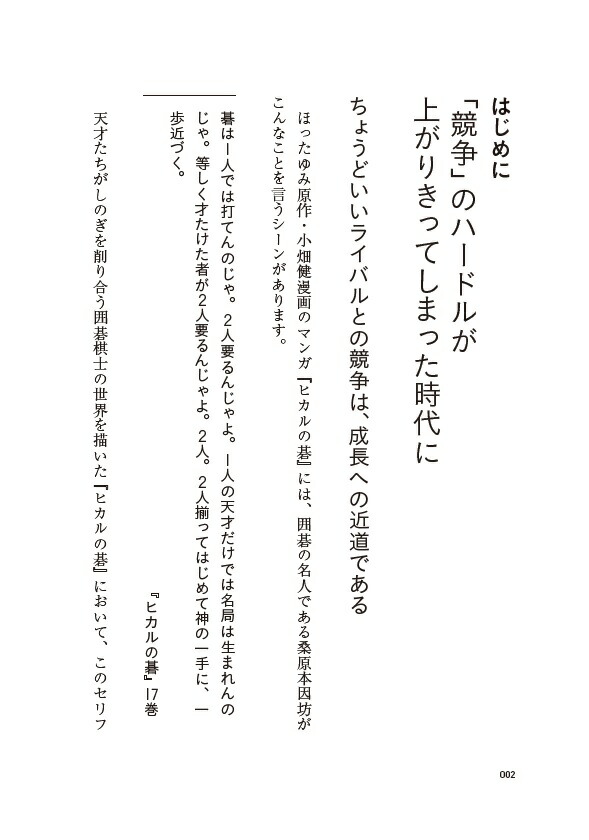 はじめに
「競争」のハードルが
上がりきってしまった時代に
ちょうどいいライバルとの競争は、成長への近道である
ほったゆみ原作・小畑健漫画のマンガ『ヒカルの碁』には、囲碁の名人である桑原本因坊が
こんなことを言うシーンがあります。
碁は一人では打てんのじゃ。2人要るんじゃよ。一人の天才だけでは名局は生まれんの
じゃ。等しく才たけた者が2人要るんじゃよ。2人。2人揃ってはじめて神の一手に、一
歩近づく。
『ヒカルの碁』17巻
天才たちがしのぎを削り合う囲碁棋士の世界を描いた『ヒカルの碁』において、このセリフ
002